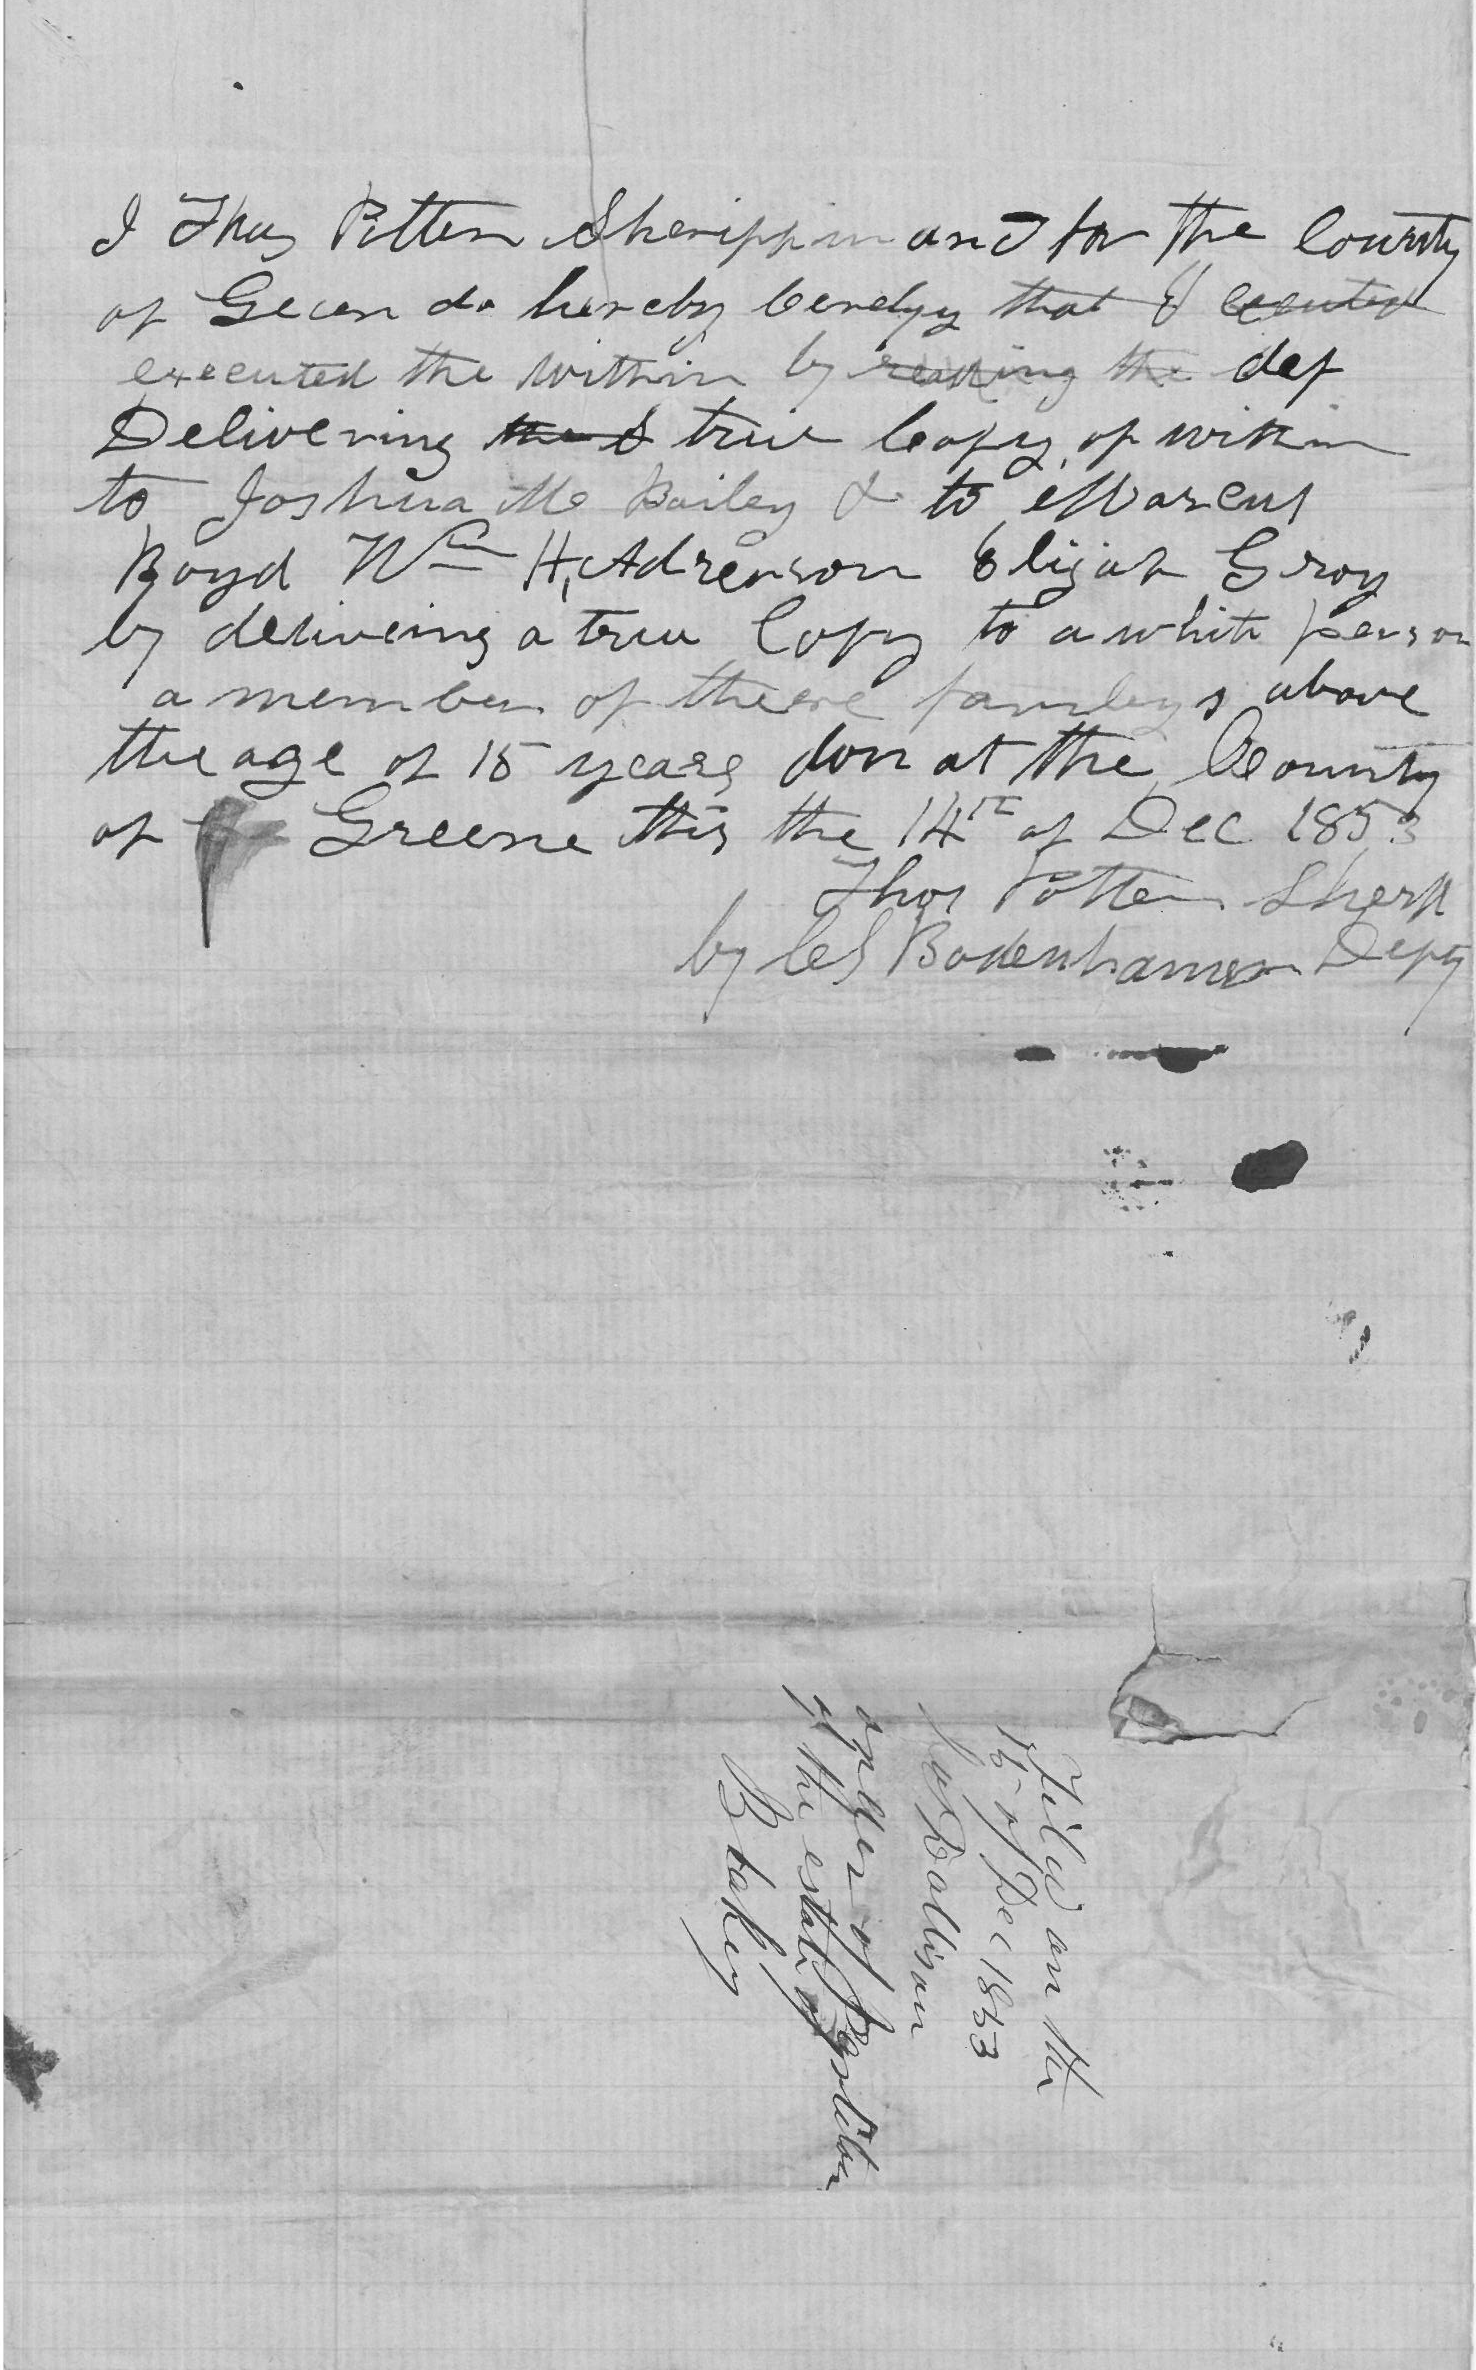 I Thos Potter Sheriff in and for the County
of Green do hereby Certefy that I executed
executed the within by reading the def
Delivering the & true Copy of within
to Joshua M Bailey & to Marcus
Boyd Wm H. Adrenson Elijah Gray
by delivering a true Copy to a white person
a member of there familys above
the age of 15 years don at the County
of Greene this the 14th of Dec 1853
Thos Potter Sherff
by CS Bodenhamer Depty
Filed on the
15 of Dec 1853
J Dollison
order of Partition
of the estate of
Blakey